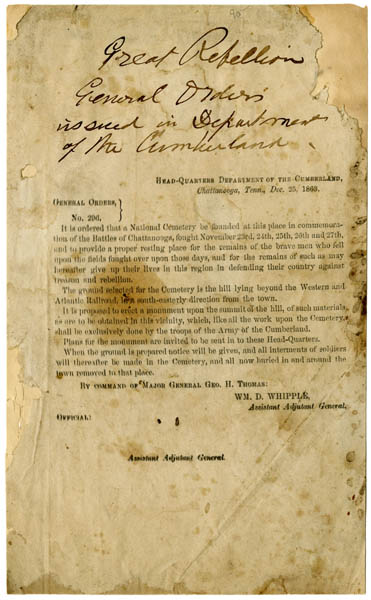 Great Rebellion
General Orders
issued in Department
of the Cumberland.
Head-Quarters Department of the Cumberland,
Chattanooga, Tenn., Dec. 25, 1863.
General Orders, }
No. 296. }
It is ordered that a National Cemetery be founded at this place in commemora-
tion of the Battles of Chattanooga, fought November 23rd, 24th, 25th, 26th and 27th,
and to provide a proper resting place for the remains of the brave men who fell
upon the fields fought over upon those days, and for the remains of such as may
hereafter give up their lives in this region in defending their country against
treason and rebellion.
The ground selected for the Cemetery is the hill lying beyond the Western and
Atlantic Railroad, in a south-easterly direction from the town.
It is proposed to erect a monument upon the summit of the hill, of such materials
as are to be obtained in this vicinity, which, like all the work upon the Cemetery,
shall be exclusively done by the troops of the Army of the Cumberland.
Plans for the monument are invited to be sent in to these Head-Quarters.
When the ground is prepared notice will be given, and all interments of soldiers
will thereafter be made in the Cemetery, and all now buried in and around the
town removed to that place.
By command of Major General Geo. H. Thomas:
WM. D. WHIPPLE,
Assistant Adjutant General.
Official:
Assistant Adjutant General.